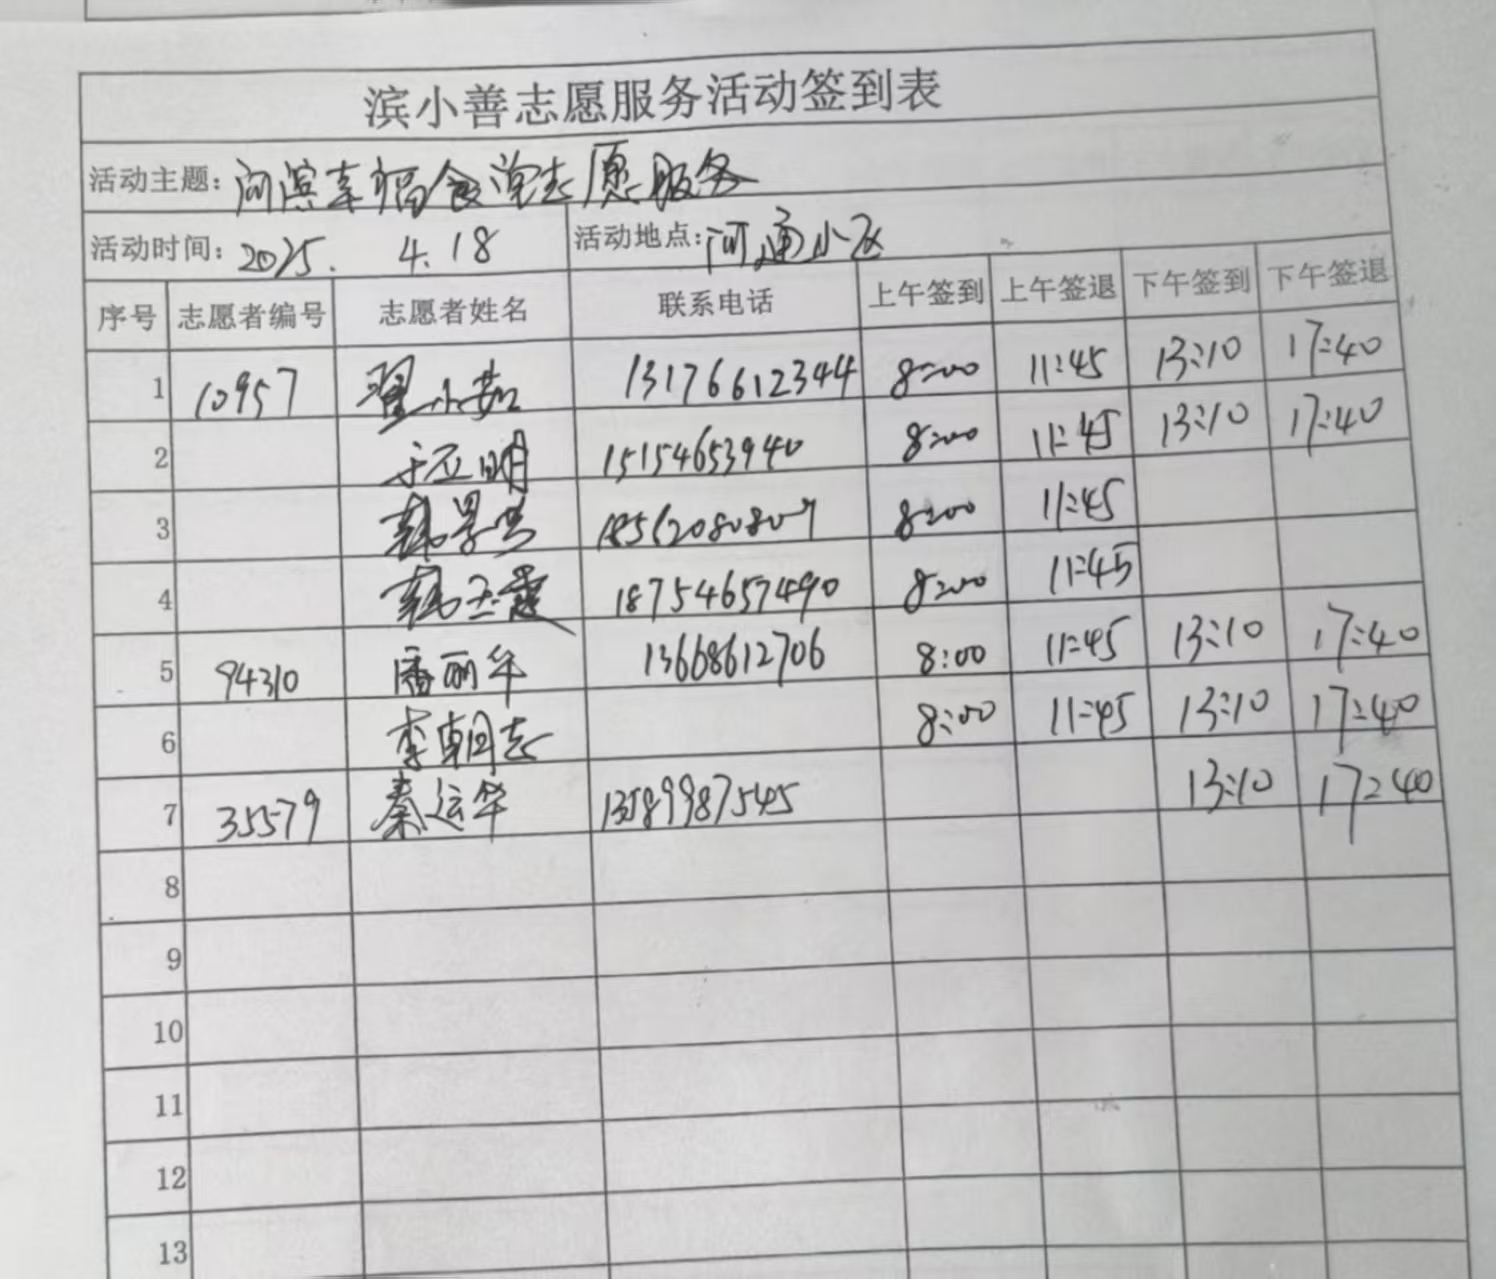 滨小善志愿服务活动签到表
活动主题：河滨幸福食堂志愿服务
活动时间：2025. 4.18 活动地点：河通小区
序号 志愿者编号 志愿者姓名 联系电话 上午签到 上午签退 下午签到 下午签退
1 10957 翟小茹 13176612344 8:00 11:45 13:10 17:40
2 于立明 15154653940 8:00 11:45 13:10 17:40
3 韩景兰 8:00 11:45
4 韩玉霞 18754657490 8:00 11:45
5 94310 潘丽华 13668612706 8:00 11:45 13:10 17:40
6 李朝志 8:00 11:45 13:10 17:40
7 35579 秦运华 13589987545 13:10 17:40
8
9
10
11
12
13